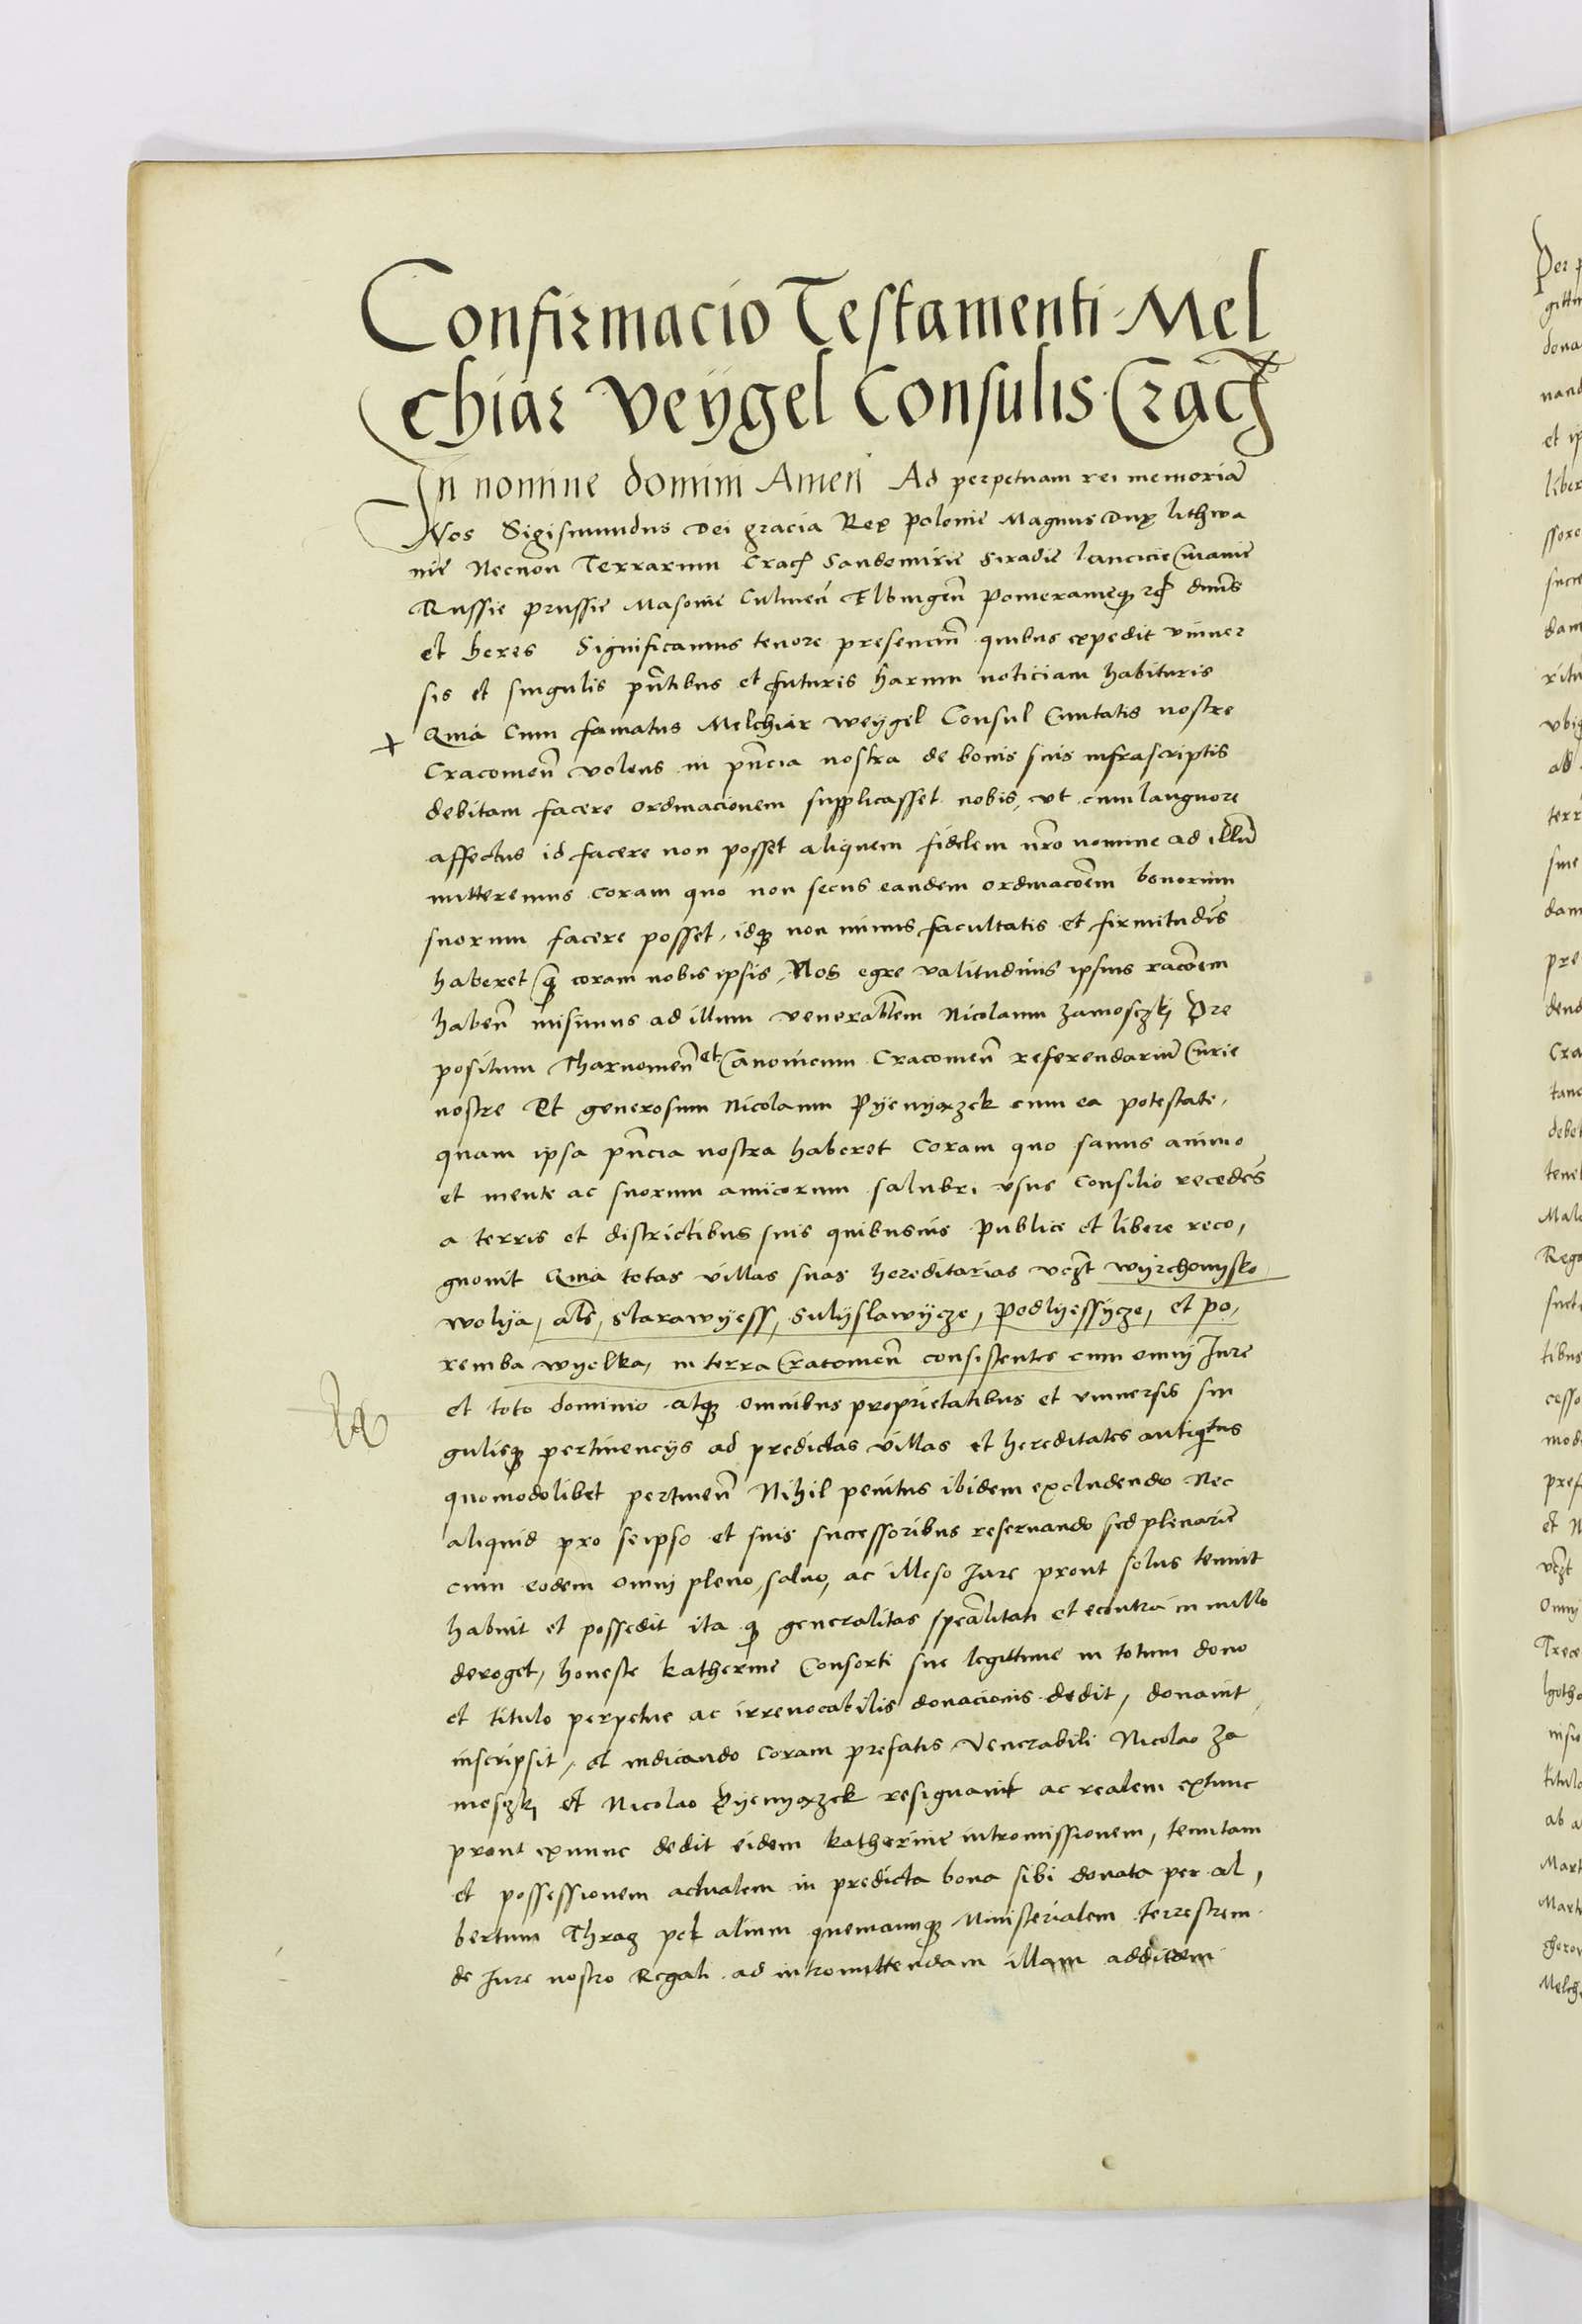 Confirmacio Testamenti Mel
chiar Veÿgel Consulis Crac
In nomine domini Amen Ad perpetuam rei memoriã
Nos Sigismundus Dei gracia Rex Polonie Magnus Dux lithwa
nie Necnon Terrarum Crac Sandomirie Siradie lancicie Cuiauie
Russie prussie Masouie Culmeñ Elbingeñ Pomeranieq̃ dnus
et heres Significamus tenore presenciũ quibus expedit vniuer
sis et singulis pñtibus et futuris harum noticiam habituris
Quia Cum famatus Melchiar weÿgel Consul Ciuitatis nostre
Cracouieñ volens in pñcia nostra de bonis suis infrascriptis
debitam facere ordinacionem supplicasset nobis, vt cum languore
affectus id facere non posset aliquem fidelem nr̃o nomine ad illũ
mitteremus coram quo non secus eandem ordinacõem bonorum
suorum facere posset, idq̃ non minus facultatis et firmitudĩs
haberet q̃ coram nobis ipsis, Nos egre valitudinis ipsius racõem
habeñ misimus ad illum venerablem Nicolaum zamosczkj Pre
positum Tharnouieñ et Canonicum Cracouieñ referendariũ Curie
nostre Et generosum Nicolaum Pÿenyaxzek cum ea potestate,
quam ipsa pñcia nostra haberet Coram quo sanus animo
et mente ac suorum amicorum salubri vsus Consilio recedẽs
a terris et districtibus suis quibusuis Publice et libere reco,
gnouit Quia totas villas suas hereditarias vczt wyrchomysko
wolÿa, als, starawÿess, sulÿslawÿcze, Podlÿessÿcze, et po,
remba wyelka, in terra Cracouieñ consistentes cum omnj Jure
et toto dominio atq̃ omnibus proprietatibus et vniuersis sin
gulisq̃ pertinencÿs ad predictas villas et hereditates antiqitus
quomodolibet pertineñ Nihil penitus ibidem excludendo Nec
aliquid pro seipso et suis successoribus reseruando sed plenarie
cum eodem omnj pleno, saluo, ac illeso Jure prout solus tenuit
habuit et possedit ita q̃ generalitas speãlitati et econtra in nullo
deroget, honeste katherine Consorti sue legittime in totum dono
et titulo perpetue ac irreuocabilis donacionis dedit, donauit,
inscripsit, et indicando Coram prefatis Venerabili Nicolao Za
mosczkj et Nicolao Pÿenyaxzek resignauit ac realem extunc
prout exnunc dedit eidem katherine intromissionem, tenutam
et possessionem actualem in predicta bona sibi donata per al,
bertum Thraz pel alium quemcumq̃ Ministerialem terrestrem
de Jure nostro Regali ad intromittendam illam addidem